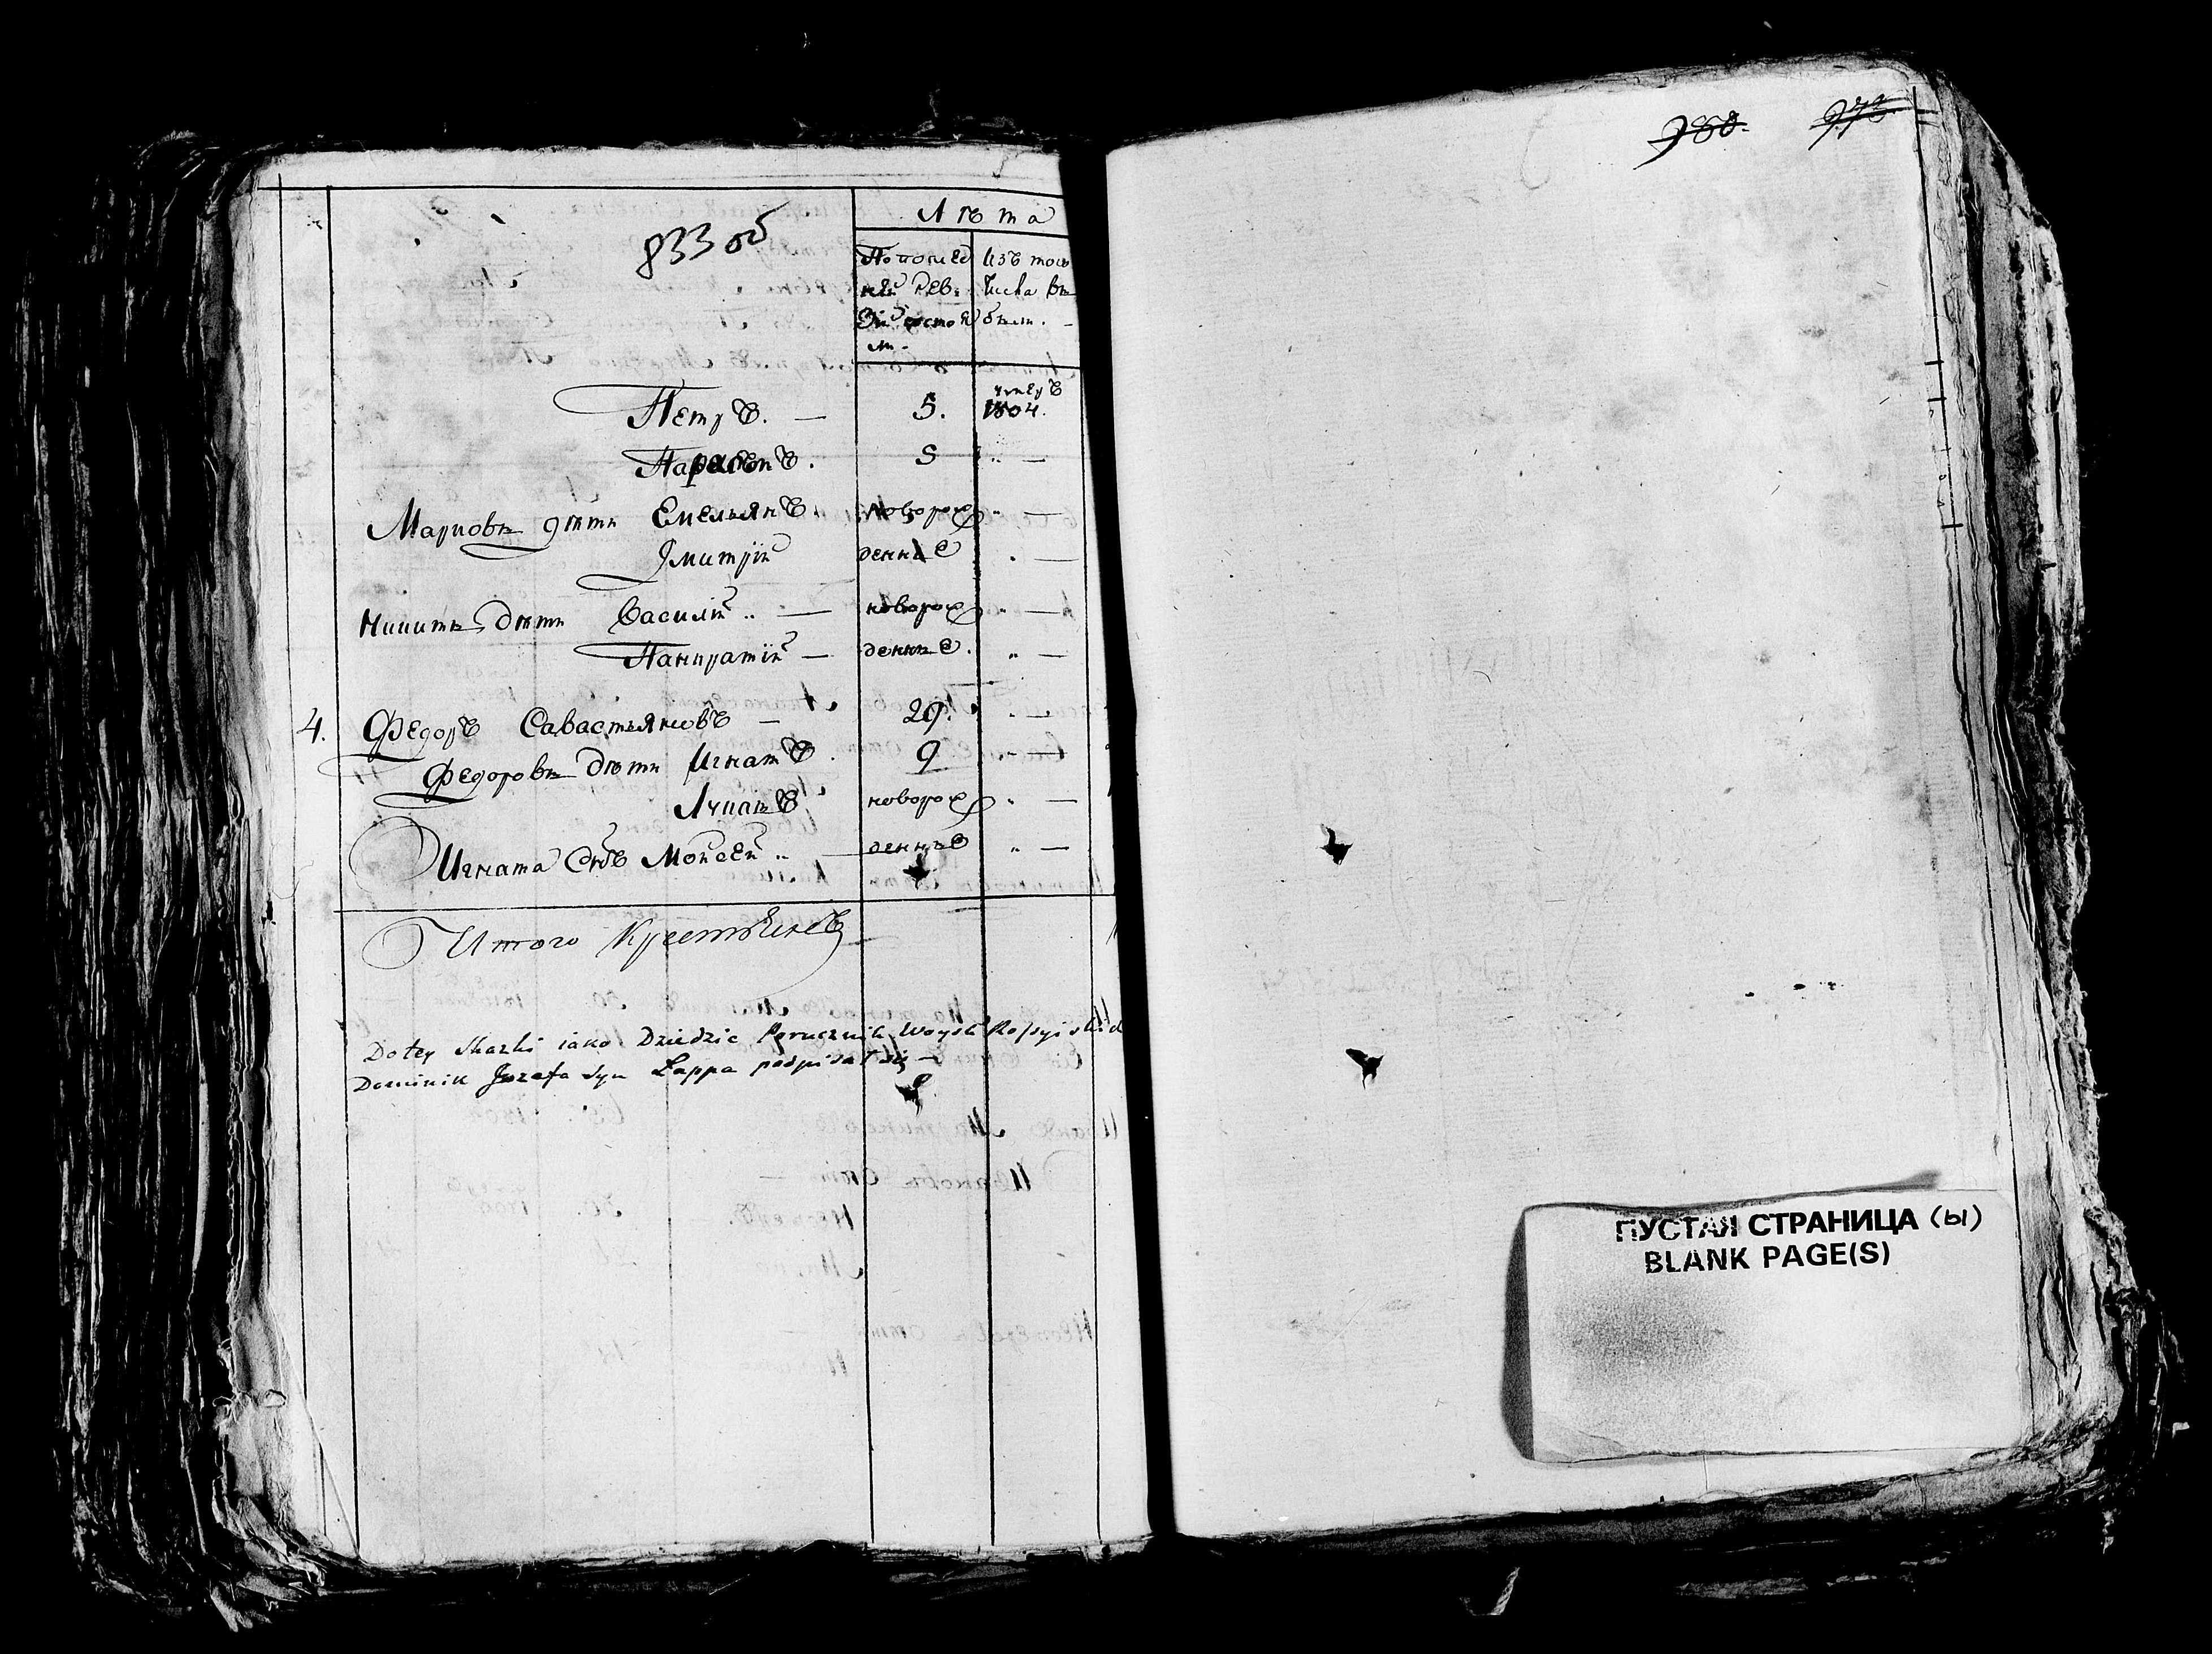 833 об
Лѣта
По послед Изъ того
ней рев. Числа вы
зіи состоя были.
ли.
Петръ. — 5. умеръ 1804.
5 " —
Марковы дѣти Емельянъ. Новорож " —
Дмитрій денные " —
Никиты дѣти Василій — новорож " —
Панкратій — денные. " —
4. Федоръ Савастьяновъ — 29. " —
Федоровы дѣти Игнатъ. 9 " —
Лукьянъ новорож " —
Игната Снъ Мойсей — денные " —
Итого Крестьянъ
Do tey Skazki iako Dziedzic Porucznik Woysk Rossyiskich
Dominik Jozefa Syn Łappa podpisał się —
980. 973
ПУСТАЯ СТРАНИЦА (ы)
BLANK PAGE(S)